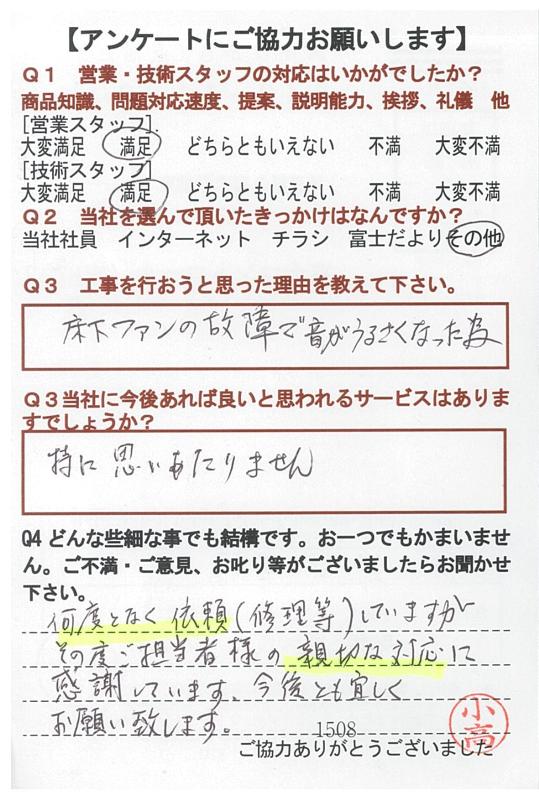 【アンケートにご協力お願いします】
Q1 営業・技術スタッフの対応はいかがでしたか？
商品知識、問題対応速度、提案、説明能力、挨拶、礼儀 他
[営業スタッフ].
大変満足 満足 どちらともいえない 不満 大変不満
[技術スタッフ]
大変満足 満足 どちらともいえない 不満 大変不満
Q2 当社を選んで頂いたきっかけはなんですか？
当社社員 インターネット チラシ 富士だより その他
Q3 工事を行おうと思った理由を教えて下さい。
床下ファンの故障で音がうるさくなった為
Q3当社に今後あれば良いと思われるサービスはありま
すでしょうか？
特に思いあたりません
Q4 どんな些細な事でも結構です。お一つでもかまいませ
ん。ご不満・ご意見、お叱り等がございましたらお聞かせ
下さい。
何度となく依頼(修理等)していますが
その度ご担当者様の親切な対応に
感謝しています。今後とも宜しく
お願い致します。
1508
小高
ご協力ありがとうございました